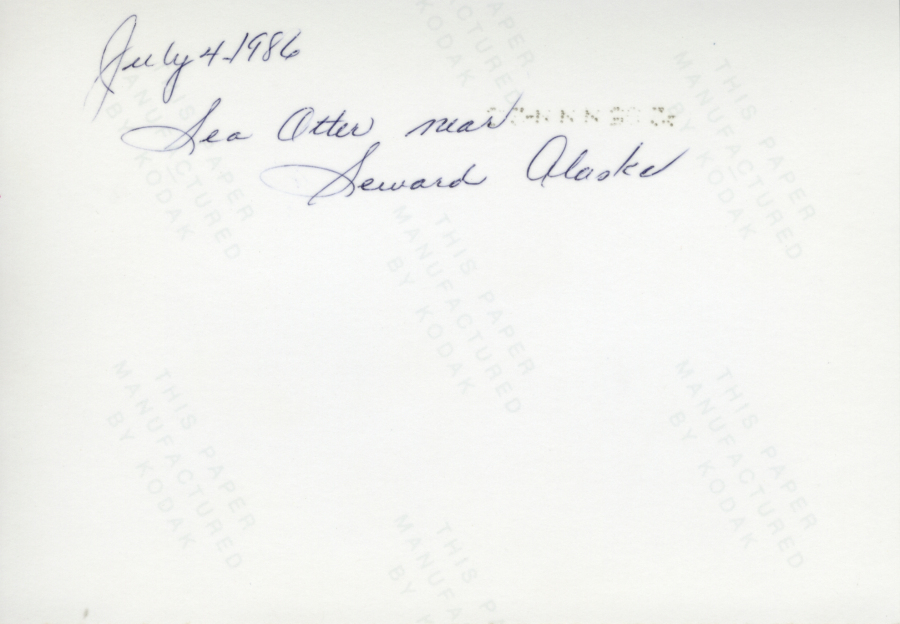 July 4-1986
Sea Otter near
Seward Alaska
THIS PAPER
MANUFACTURED
BY KODAK
THIS PAPER
MANUFACTURED
BY KODAK
THIS PAPER
MANUFACTURED
BY KODAK
THIS PAPER
MANUFACTURED
BY KODAK
THIS PAPER
MANUFACTURED
BY KODAK
THIS PAPER
MANUFACTURED
BY KODAK